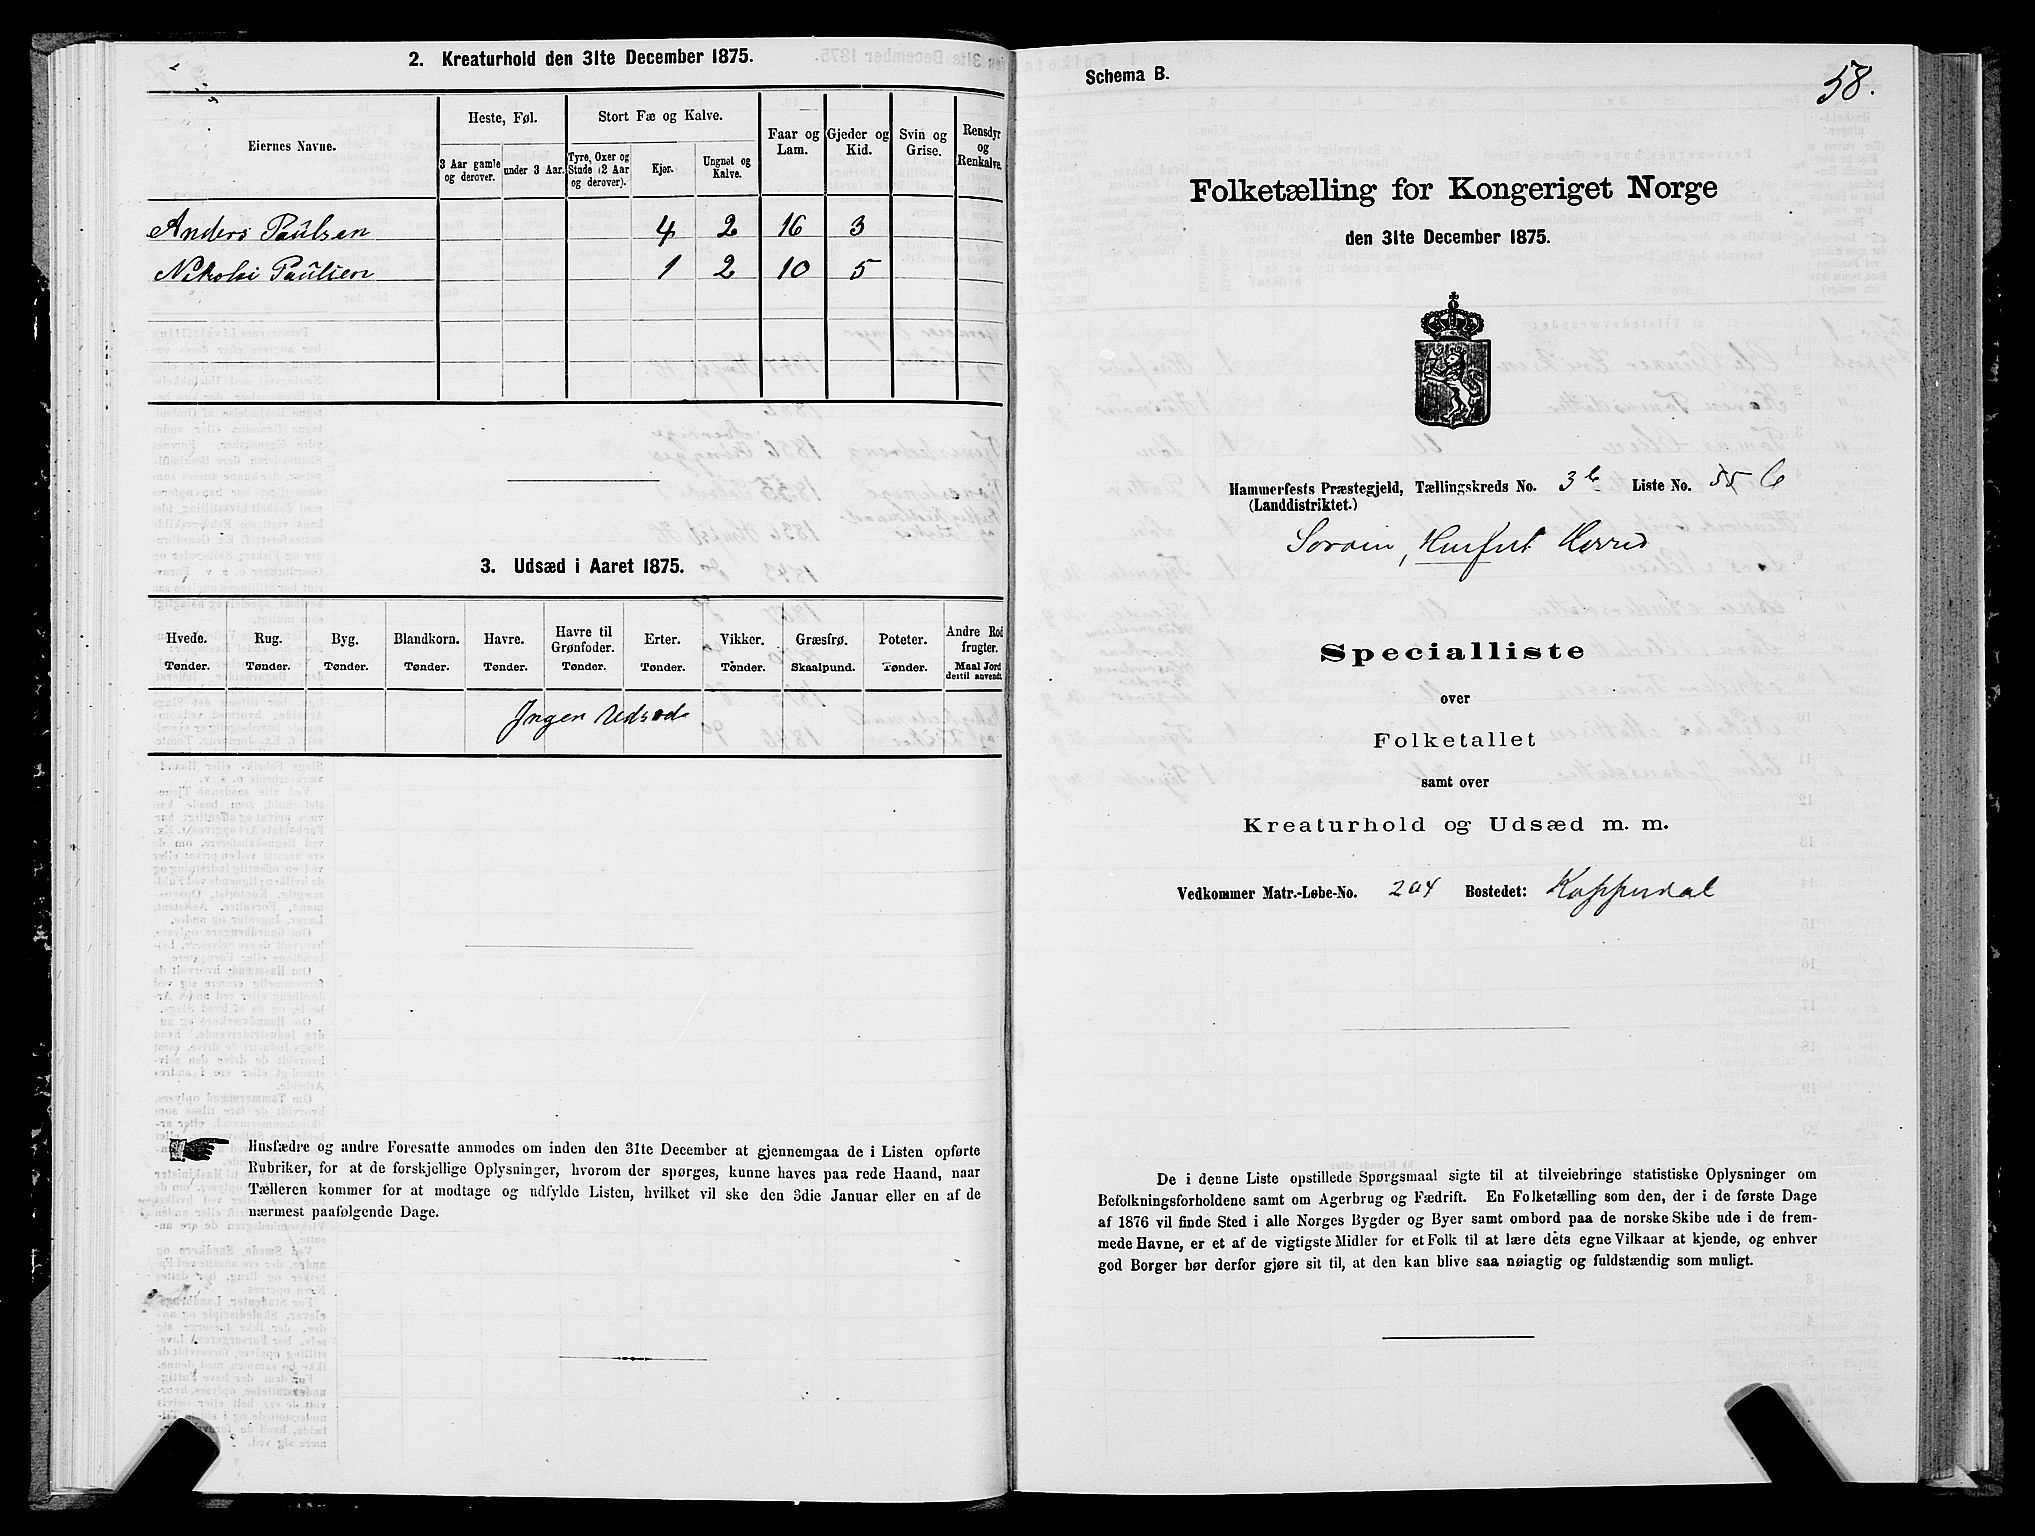 2. Kreaturhold den 31te December 1875.
Eiernes Navne.
Heste, Føl.
Stort Fæ og Kalve.
Faar og Lam.
Gjeder og Kid.
Svin og Grise.
Rensdyr og Renkalve.
3 Aar gamle og derover.
under 3 Aar.
Tyre, Oxer og Stude (2 Aar og derover).
Kjør.
Ungnøt og Kalve.
Anders Paulsen 4 2 16 3
Nikolai Paulsen 1 2 10 5
3. Udsæd i Aaret 1875.
Hvede. Rug. Byg. Blandkorn. Havre. Havre til Grønfoder. Erter. Vikker. Græsfrø. Poteter. Andre Rodfrugter.
Tønder. Tønder. Tønder. Tønder. Tønder. Tønder. Tønder. Tønder. Skaalpund. Tønder. Maal Jord dertil anvendt.
Ingen Udsæd
Husfædre og andre Foresatte anmodes om inden den 31te December at gjennemgaa de i Listen opførte
Rubriker, for at de forskjellige Oplysninger, hvorom der spørges, kunne haves paa rede Haand, naar
Tælleren kommer for at modtage og udfylde Listen, hvilket vil ske den 3die Januar eller en af de
nærmest paafølgende Dage.
Schema B.
58.
Folketælling for Kongeriget Norge
den 31te December 1875.
Hammerfests Præstegjeld, Tællingskreds No. 3b Liste No. 55
(Landdistriktet.)
Sørøen, Herred
Specialliste
over
Folketallet
samt over
Kreaturhold og Udsæd m. m.
Vedkommer Matr.-Løbe-No. 204 Bostedet: Kopperdal
De i denne Liste opstillede Spørgsmaal sigte til at tilveiebringe statistiske Oplysninger om
Befolkningsforholdene samt om Agerbrug og Fædrift. En Folketælling som den, der i de første Dage
af 1876 vil finde Sted i alle Norges Bygder og Byer samt ombord paa de norske Skibe ude i de frem-
mede Havne, er et af de vigtigste Midler for et Folk til at lære dets egne Vilkaar at kjende, og enhver
god Borger bør derfor gjøre sit til, at den kan blive saa nøiagtig og fuldstændig som muligt.